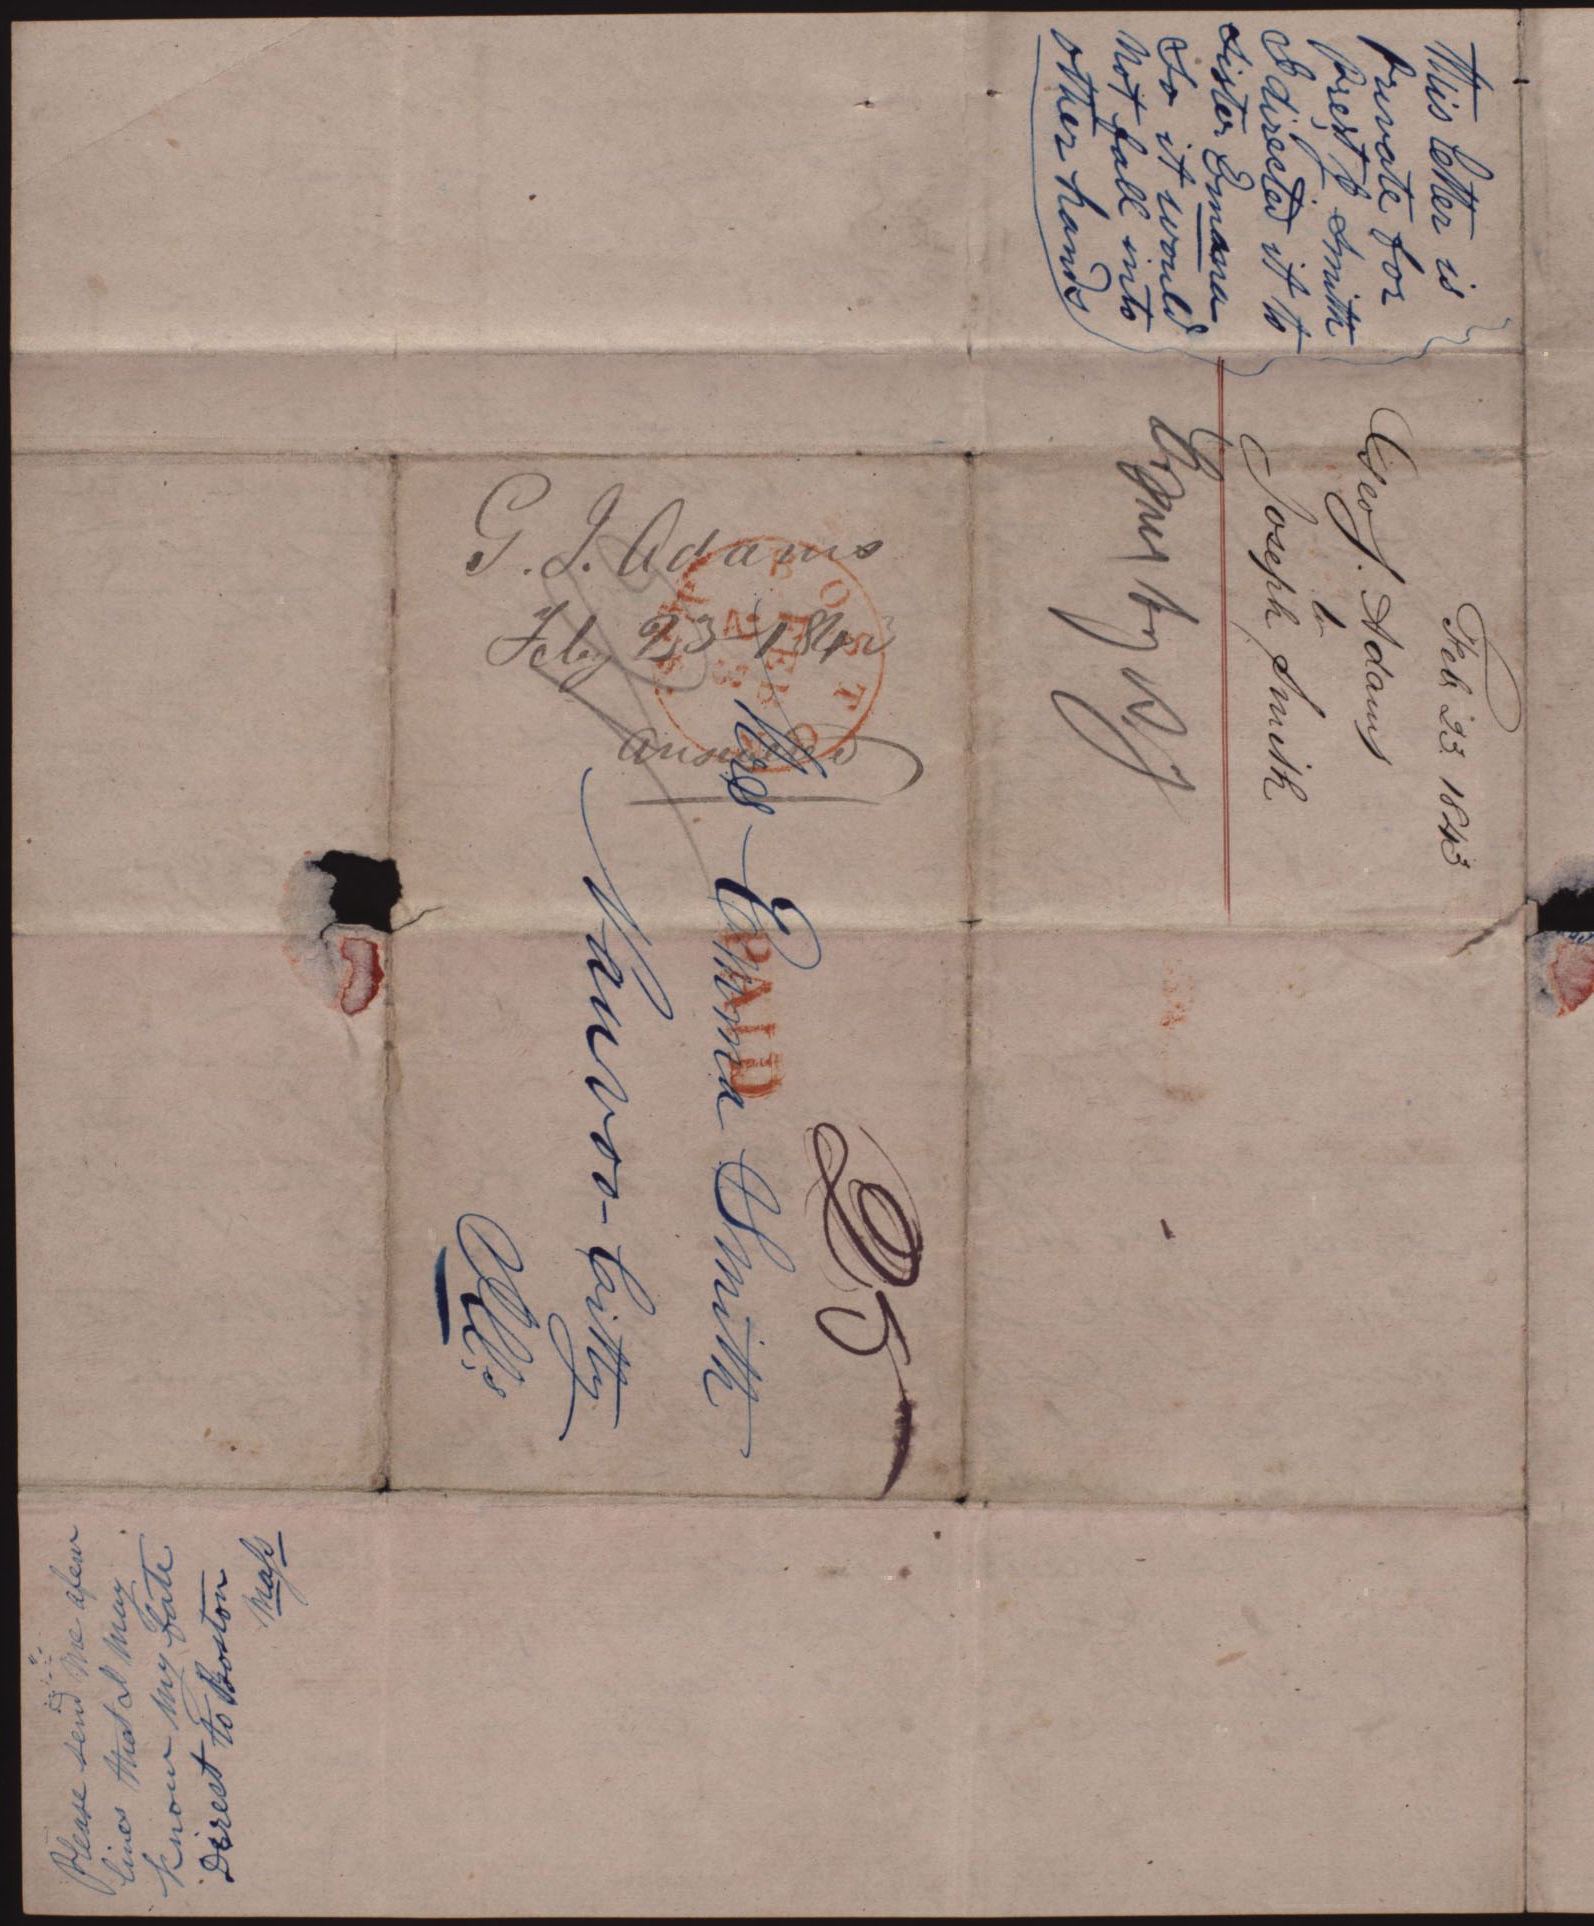 This letter is
private for
Prest J Smith
I directed it to
Sister Emma
So it would
Not fall into
other hands
Feb 23 1843
Geo. J. Adams
to
Joseph Smith
G. J. Adams
Feby 23 - 1843
answered
BOSTON
FEB
23
MS
PAID
25
Mrs Emma Smith
Nauvoo - Citty
Ills
Please send me afew
lines that I may
know my fate
Direct to Boston
Mass